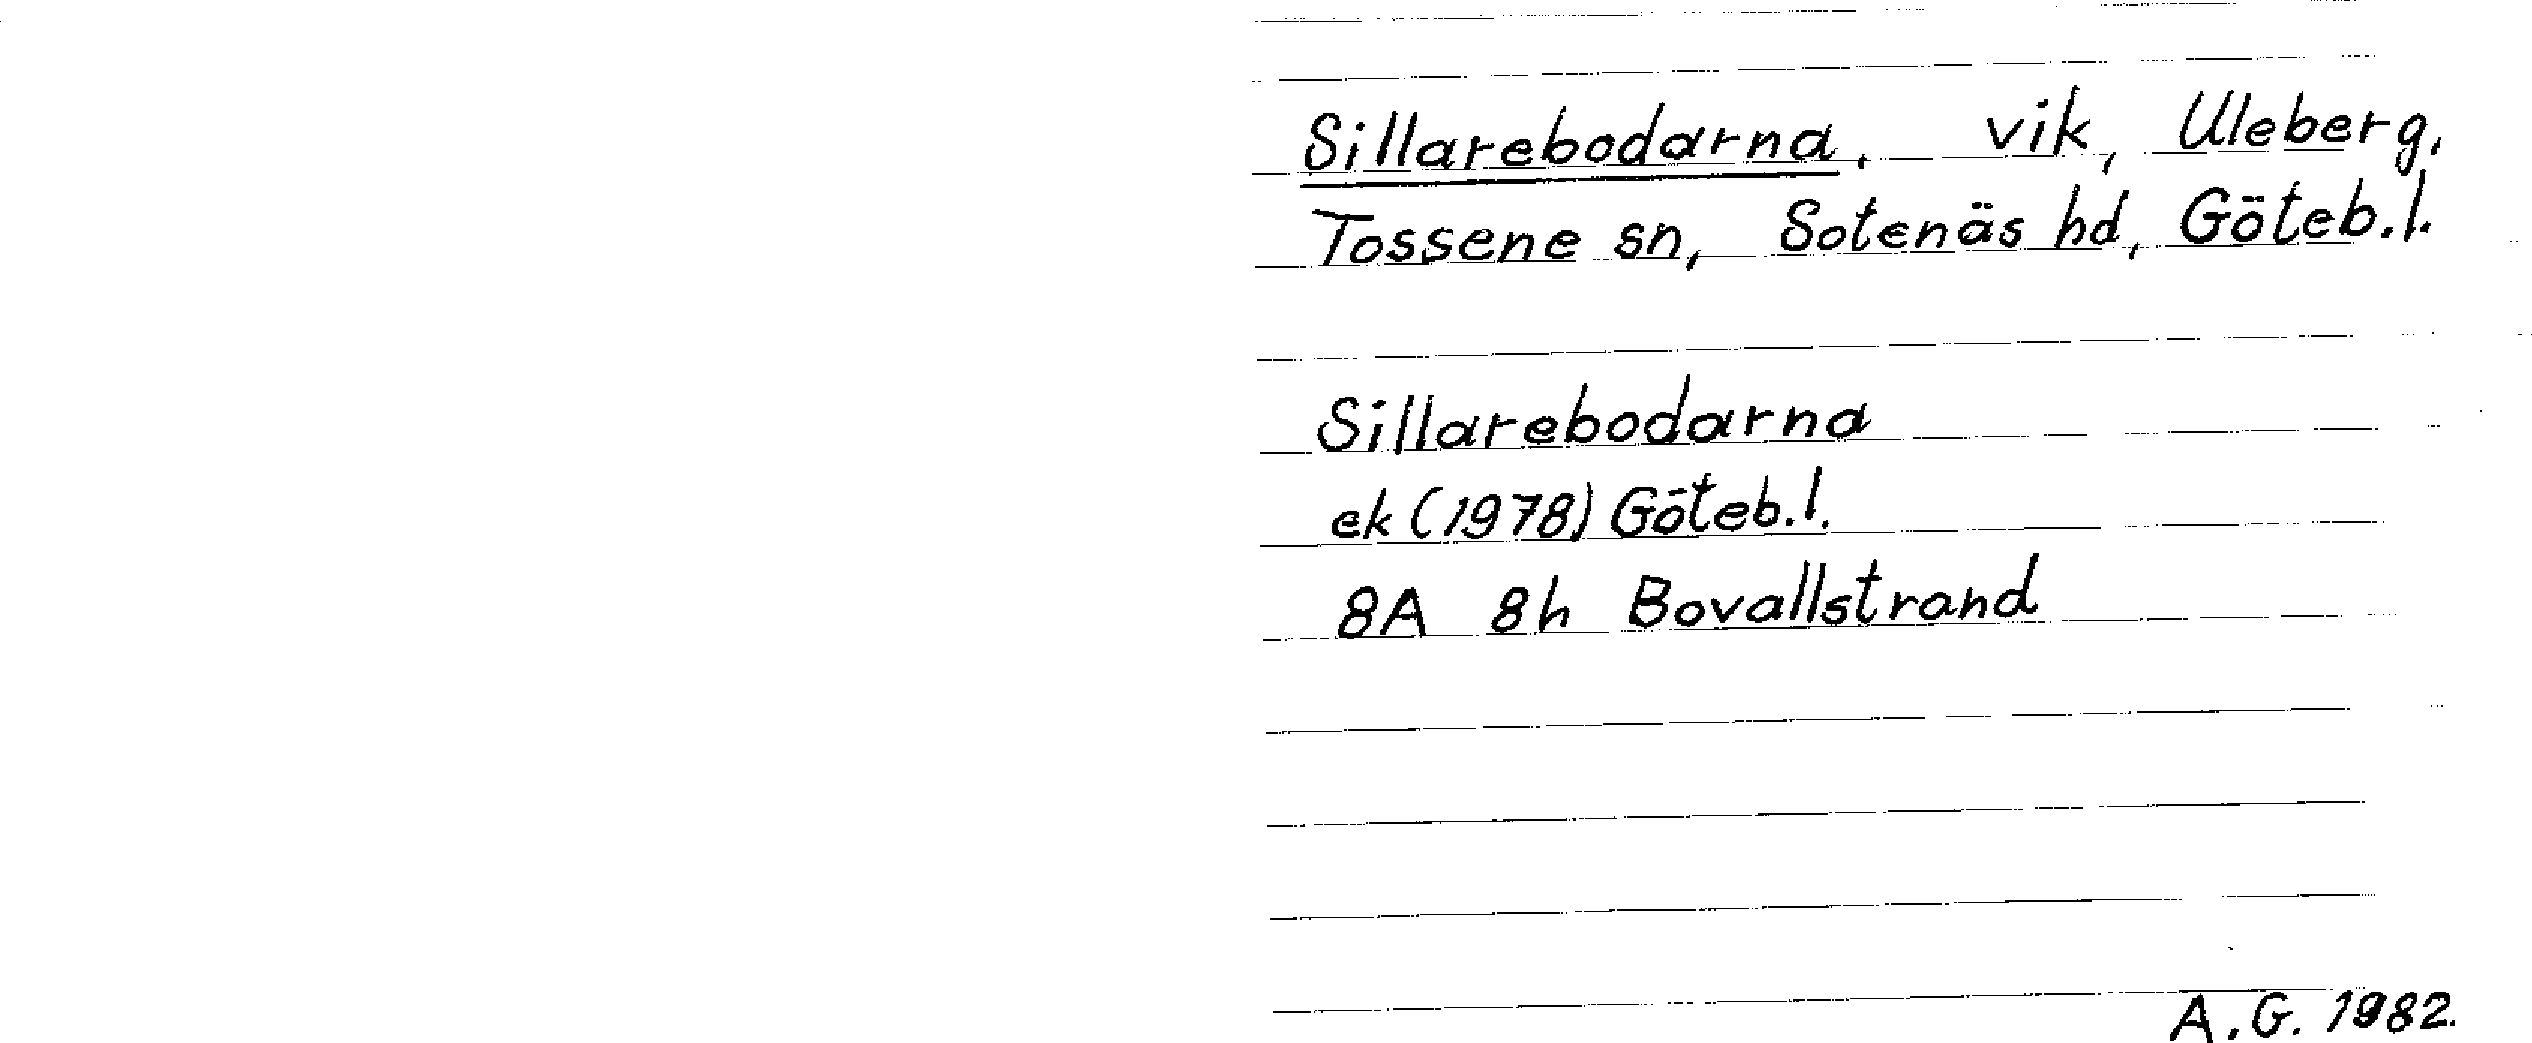 Sillarebodarna, vik, Uleberg,
Tossene sn, Sotenäs hd, Göteb.l.
Sillarebodarna
ek (1978) Göteb.l.
8A 8h Bovallstrand
A.G. 1982.